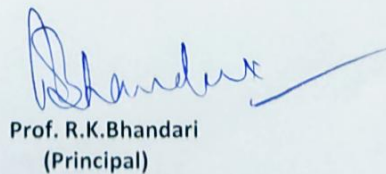 RBhandari
Prof. R.K.Bhandari
(Principal)